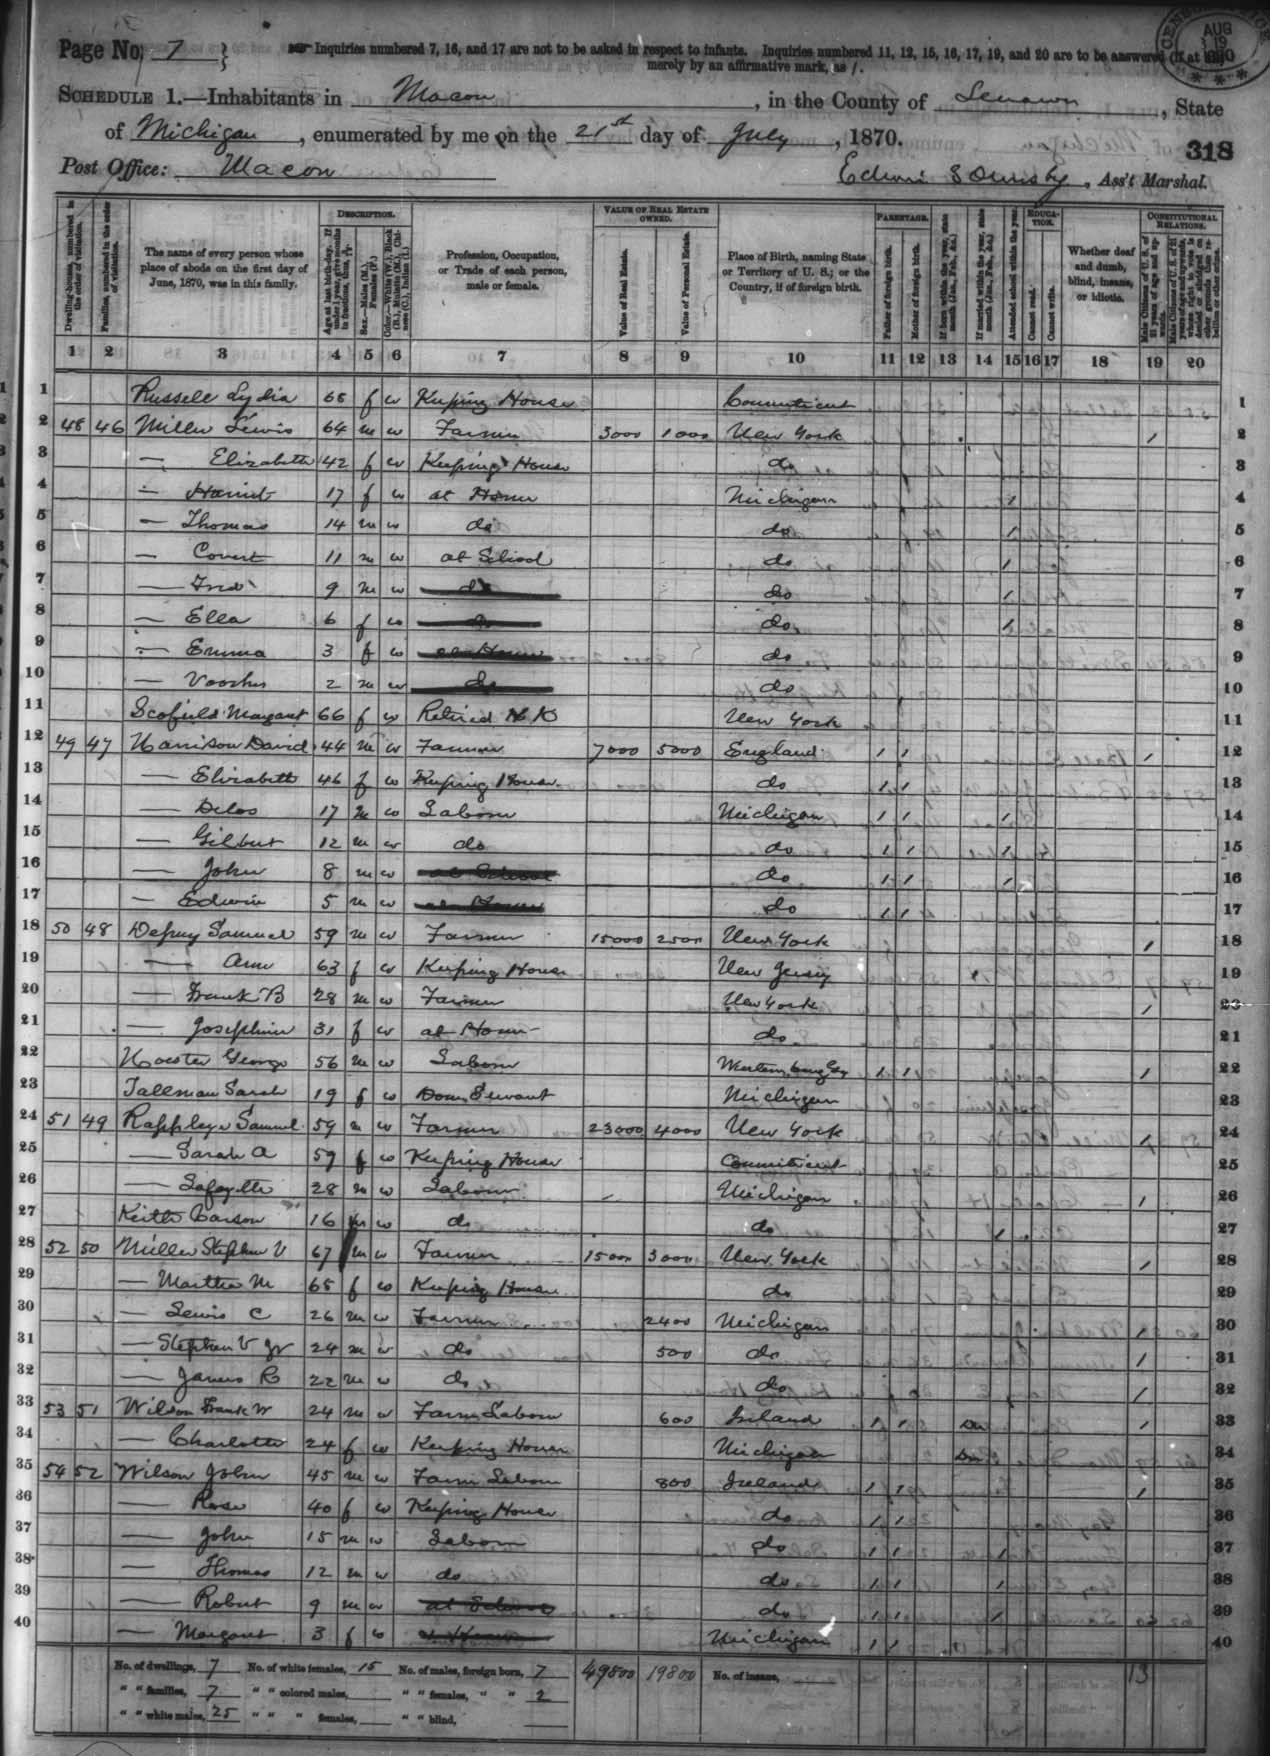 Page No. 7 } Inquiries numbered 7, 16, and 17 are not to be asked in respect to infants. Inquiries numbered 11, 12, 15, 16, 17, 19, and 20 are to be answered (if at all)
merely by an affirmative mark, as /.
AUG
SCHEDULE 1.—Inhabitants in Macon, in the County of Lenawee, State
of Michigan, enumerated by me on the 21st day of July, 1870.
318
Post Office: Macon
Edwin , Ass't Marshal.
Dwelling-houses, numbered in the order of visitation.
Families, numbered in the order of visitation.
The name of every person whose place of abode on the first day of June, 1870, was in this family.
DESCRIPTION.
Age at last birth-day. If under 1 year, give months in fractions, thus,
Sex.—Males (M.), Females (F.)
Color.—White (W.), Black (B.), Mulatto (M.), Chinese (C.), Indian (I.)
Profession, Occupation, or Trade of each person, male or female.
VALUE OF REAL ESTATE OWNED.
Value of Real Estate.
Value of Personal Estate.
Place of Birth, naming State or Territory of U. S.; or the Country, if of foreign birth.
PARENTAGE.
Father of foreign birth.
Mother of foreign birth.
If born within the year, state month (Jan., Feb., &c.)
If married within the year, state month (Jan., Feb., &c.)
EDUCATION.
Attended school within the year.
Cannot read.
Cannot write.
Whether deaf and dumb, blind, insane, or idiotic.
CONSTITUTIONAL RELATIONS.
Male Citizens of U. S. of 21 years of age and upwards.
Male Citizens of U. S. of 21 years of age and upwards, whose right to vote is denied or abridged on other grounds than rebellion or other crime.
1 2 3 4 5 6 7 8 9 10 11 12 13 14 15 16 17 18 19 20
1 Russell Lydia 68 f w Keeping House Connecticut 1
2 48 46 Miller Lewis 64 m w Farmer 3000 1000 New York / 2
3 — Elizabeth 42 f w Keeping House do 3
4 — Harriet 17 f w at Home Michigan / 4
5 — Thomas 14 m w do do / 5
6 — Covert 11 m w at School do / 6
7 — Fred 9 m w do do / 7
8 — Ella 6 f w do do / 8
9 — Emma 3 f w at Home do 9
10 — Voorhes 2 m w do do 10
11 Scofield Margaret 66 f w Retired H K New York 11
12 49 47 Harrison David 44 m w Farmer 7000 5000 England / / / 12
13 — Elizabeth 46 f w Keeping House do / / 13
14 — Delos 17 m w Laborer Michigan / / / 14
15 — Gilbert 12 m w do do / / / 15
16 — John 8 m w at School do / / / 16
17 — Edwin 5 m w at Home do / / 17
18 50 48 Depuy Samuel 59 m w Farmer 15000 2500 New York / 18
19 — Ann 63 f w Keeping House New Jersey 19
20 — Frank B 28 m w Farmer New York / 20
21 — Josephine 31 f w at Home do 21
22 George 56 m w Laborer / / / 22
23 Tallman Sarah 19 f w Dom Servant Michigan 23
24 51 49 Rappleye Samuel 59 m w Farmer 23000 4000 New York / 24
25 — Sarah A 59 f w Keeping House Connecticut 25
26 — Lafayette 28 m w Laborer Michigan / 26
27 Keith Carson 16 m w do do / 27
28 52 50 Miller Stephen V 67 m w Farmer 1500 3000 New York / 28
29 — Martha M 65 f w Keeping House do 29
30 — Lewis C 26 m w Farmer 2400 Michigan / 30
31 — Stephen V Jr 24 m w do 500 do / 31
32 — James C 22 m w do do / 32
33 53 51 Wilson Frank W 24 m w Farm Laborer 600 Ireland / / / 33
34 — Charlotte 24 f w Keeping House Michigan 34
35 54 52 Wilson John 45 m w Farm Laborer 800 Ireland / / / 35
36 — Rose 40 f w Keeping House do / / 36
37 — John 15 m w Laborer do / / / 37
38 — Thomas 12 m w do do / / / 38
39 — Robert 9 m w at School do / / / 39
40 — Margaret 3 f w at Home Michigan / / 40
No. of dwellings, 7 No. of white females, 15 No. of males, foreign born, 7 49500 19800 No. of insane, 13
" " families, 7 " " colored males, " " females, " " 2
" " white males, 25 " " " females, " " blind,